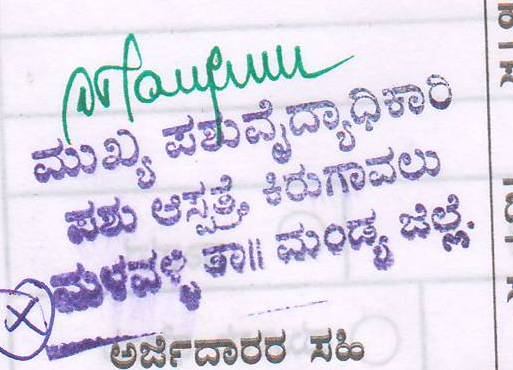 ಮುಖ್ಯ ಪಶುವೈದ್ಯಾಧಿಕಾರಿ
ಪಶು ಆಸ್ಪತ್ರೆ, ಕಿರುಗಾವಲು
ಮಳವಳ್ಳಿ ತಾ|| ಮಂಡ್ಯ ಜಿಲ್ಲೆ.
ಅರ್ಜಿದಾರರ ಸಹಿ